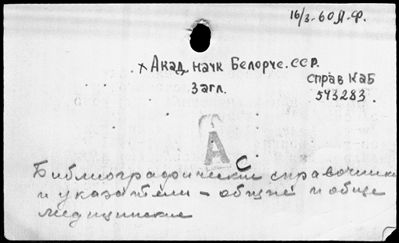 16/3-60 Л.Ф.
х Акад. наук Белорус. ССР.
Загл.
Справ каб
543283.
А С.
Библиографические справочники
и указатели - общие и обще
медицинские